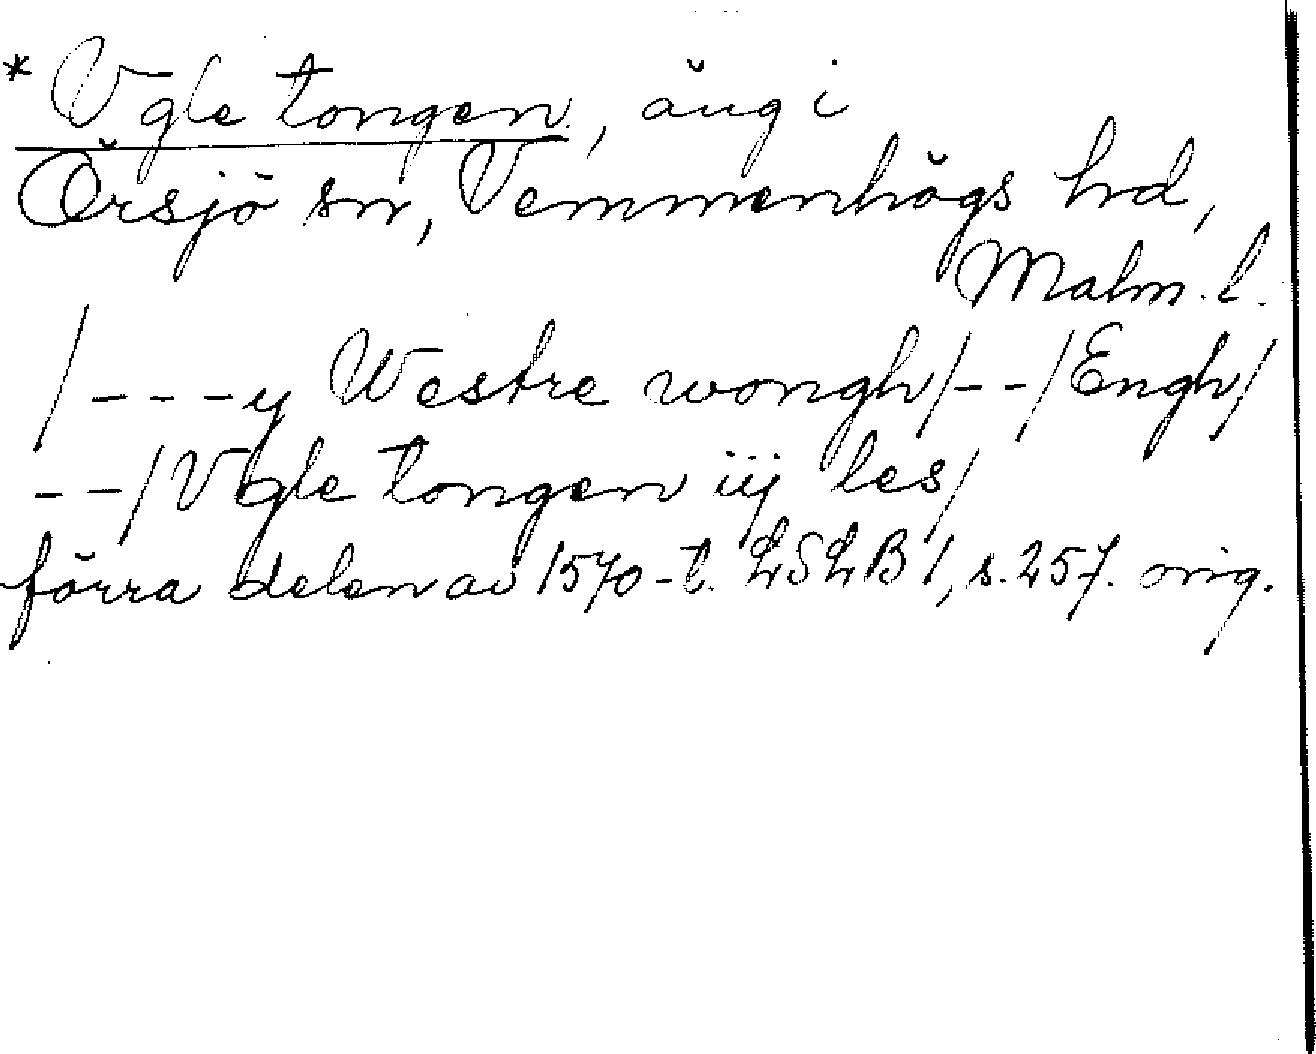 * Vgle tongen, äng i
Örsjö sn, Vemmenhögs hd,
Malm. l.
/---y Westre wongh/--/Engh/
--/Vgle tongen iij les/
förra delen av 1570-t. LSLB 1, s. 257. orig.